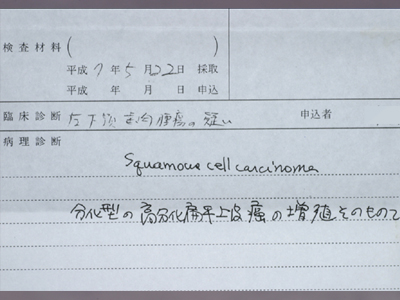 検査材料(
平成7年5月22日 採取
平成 年 月 日 申込
臨床診断 左下顎歯肉腫瘍の疑い 申込者
病理診断
Squamous cell carcinoma
分化型の高分化扁平上皮癌の増殖そのもので